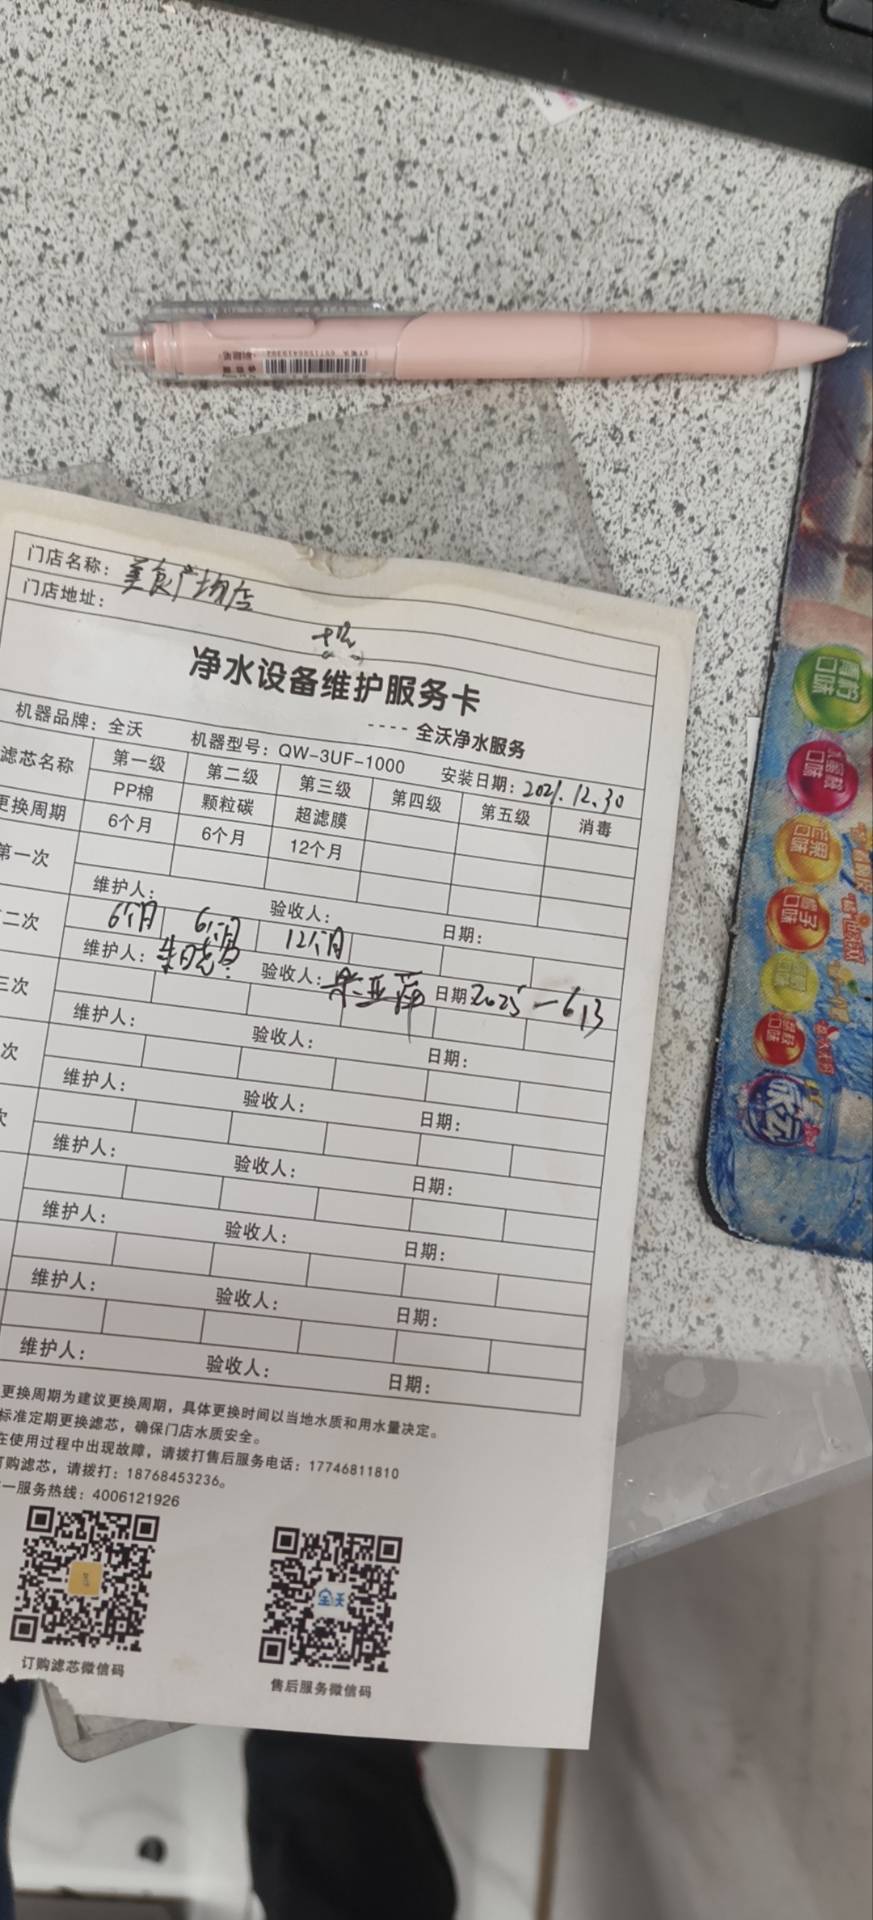 门店名称：美食广场店
门店地址：
净水设备维护服务卡
----全沃净水服务
机器品牌：全沃 机器型号：QW-3UF-1000 安装日期：2021.12.30
滤芯名称 第一级 第二级 第三级 第四级 第五级 消毒
PP棉 颗粒碳 超滤膜
更换周期 6个月 6个月 12个月
第一次
维护人： 验收人： 日期：
二次 6个月 6个月 12个月
维护人：朱晓 验收人： 亚萍 日期 2025-6 13
三次
维护人： 验收人： 日期：
次
维护人： 验收人： 日期：
次
维护人： 验收人： 日期：
维护人： 验收人： 日期：
维护人： 验收人： 日期：
维护人： 验收人： 日期：
更换周期为建议更换周期，具体更换时间以当地水质和用水量决定。
标准定期更换滤芯，确保门店水质安全。
在使用过程中出现故障，请拨打售后服务电话：17746811810
订购滤芯，请拨打：18768453236。
一服务热线：4006121926
全沃
订购滤芯微信码
售后服务微信码
青柠口味
口味
芒果口味
橘子口味
口味